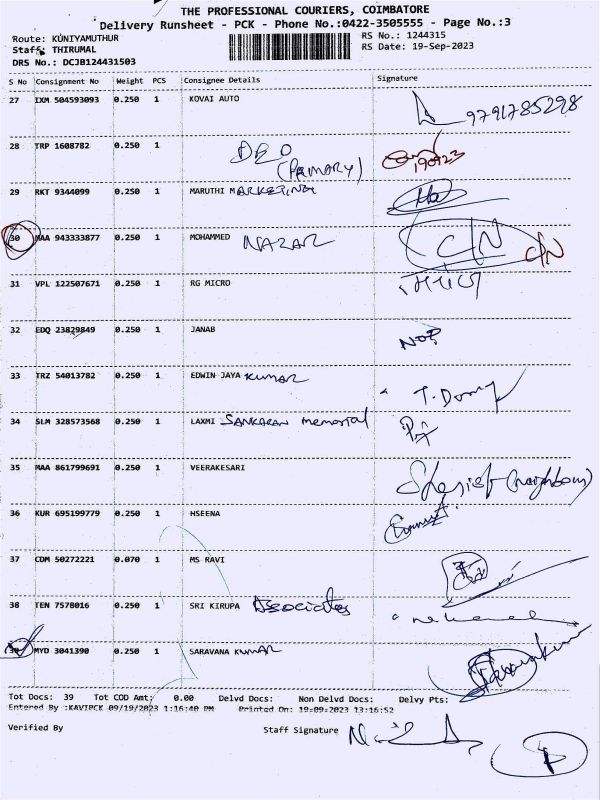 THE PROFESSIONAL COURIERS, COIMBATORE
Delivery Runsheet - PCK - Phone No.:0422-3505555 - Page No.:3
Route: KUNIYAMUTHUR
RS No.: 1244315
Staff: THIRUMAL
RS Date: 19-Sep-2023
DRS No.: DCJB124431503
S No Consignment No Weight PCS Consignee Details Signature
27 IXM 504593093 0.250 1 KOVAI AUTO 9791785298
28 TRP 1608782 0.250 1 DEO (PRIMARY) 190923
29 RKT 9344099 0.250 1 MARUTHI MARKETING
30 MAA 943333877 0.250 1 MOHAMMED NAZAR C/N C/N
31 VPL 122507671 0.250 1 RG MICRO
32 EDQ 23829849 0.250 1 JANAB
33 TRZ 54013782 0.250 1 EDWIN JAYA KUMAR
34 SLM 328573568 0.250 1 LAXMI SANKARAN memorial
35 MAA 861799691 0.250 1 VEERAKESARI (neighbour)
36 KUR 695199779 0.250 1 HSEENA
37 CDM 50272221 0.070 1 MS RAVI
38 TEN 7578016 0.250 1 SRI KIRUPA Associates
39 MYD 3041390 0.250 1 SARAVANA KUMAR
Tot Docs: 39 Tot COD Amt: 0.00 Delvd Docs: Non Delvd Docs: Delvy Pts:
Entered By :KAVIPCK 09/19/2023 1:16:40 PM Printed On: 19-09-2023 13:16:52
Verified By Staff Signature